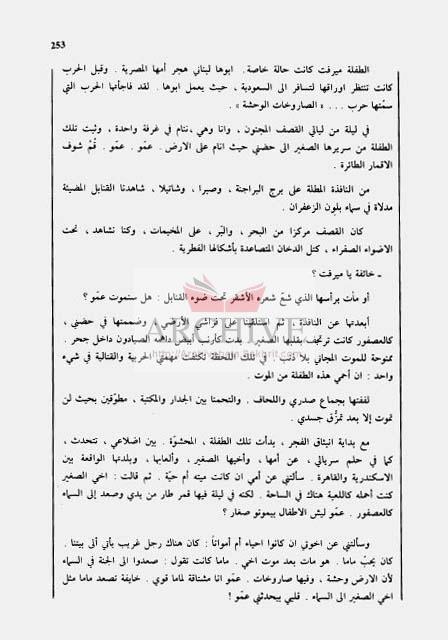 253
الطفلة ميرفت كانت حالة خاصة . ابوها لبناني هجر أمها المصرية . وقبل الحرب
كانت تنتظر اوراقها لتسافر الى السعودية ، حيث يعمل ابوها . لقد فاجأتها الحرب التي
سمّتها حرب . . . « الصاروخات الوحشة » .
في ليلة من ليالي القصف المجنون ، وانا وهي ننام في غرفة واحدة ، وثبت تلك
الطفلة من سريرها الصغير الى حضني حيث انام على الارض . عمّو . عمّو . قُمْ شوف
الاقمار الطائرة .
من النافذة المطلة على برج البراجنة ، وصبرا ، وشاتيلا ، شاهدنا القنابل المضيئة
مدلاة في سماء بلون الزعفران .
كان القصف مركزا من البحر ، والبّر ، على المخيمات ، وكنا نشاهد ، تحت
الاضواء الصفراء ، كتل الدخان المتصاعدة بأشكالها الفطرية .
ـ خائفة يا ميرفت ؟
أو مأت برأسها الذي شعّ شعره الأشقر تحت ضوء القنابل : هل سنموت عمّو ؟
أبعدتها عن النافذة ، ثم استلقينا على فراشي الأرضي ، وضممتها في حضني ،
كالعصفور كانت ترتجف بقلبها الصغير . بدت كأرنب أبيض داهمه الصيادون داخل جحر .
ممنوحة للموت المجاني بلا ذنب . في تلك اللحظة تكثفت مهمتي الحربية والقتالية في شيء
واحد : ان أحمي هذه الطفلة من الموت .
لففتها بجماع صدري واللحاف . والتحمنا بين الجدار والمكتبة ، مطوّقين بحيث لن
تموت إلا بعد تمزُّق جسدي .
مع بداية انبثاق الفجر ، بدأت تلك الطفلة ، المحشوّة . بين اضلاعي ، تتحدث ،
كما في حلم سريالي ، عن أمها ، وأخيها الصغير ، وألعابها ، وبلدتها الواقعة بين
الاسكندرية والقاهرة . سألتني عن أمي ان كانت ميته أم حيّة . ثم قالت : اخي الصغير
كنت أحمله كاللعبة هناك في الساحة . لكنه في ليلة فيها قمر طار من يدي وصعد إلى السماء
كالعصفور . عمّو ليش الاطفال بيموتو صغار ؟
وسألتني عن اخوتي ان كانوا احياء أم أمواتاً : كان هناك رجل غريب يأتي الى بيتنا .
كان يحبّ ماما . هو مات بعد موت اخي . ماما كانت تقول : صعدوا الى الجنة في السماء
لأن الارض وحشة ، وفيها صاروخات . عمّو انا مشتاقة لماما قوي . خايفة تصعد ماما مثل
اخي الصغير الى السماء . قلبي بيحدثني عمّو !
ARCHIVE